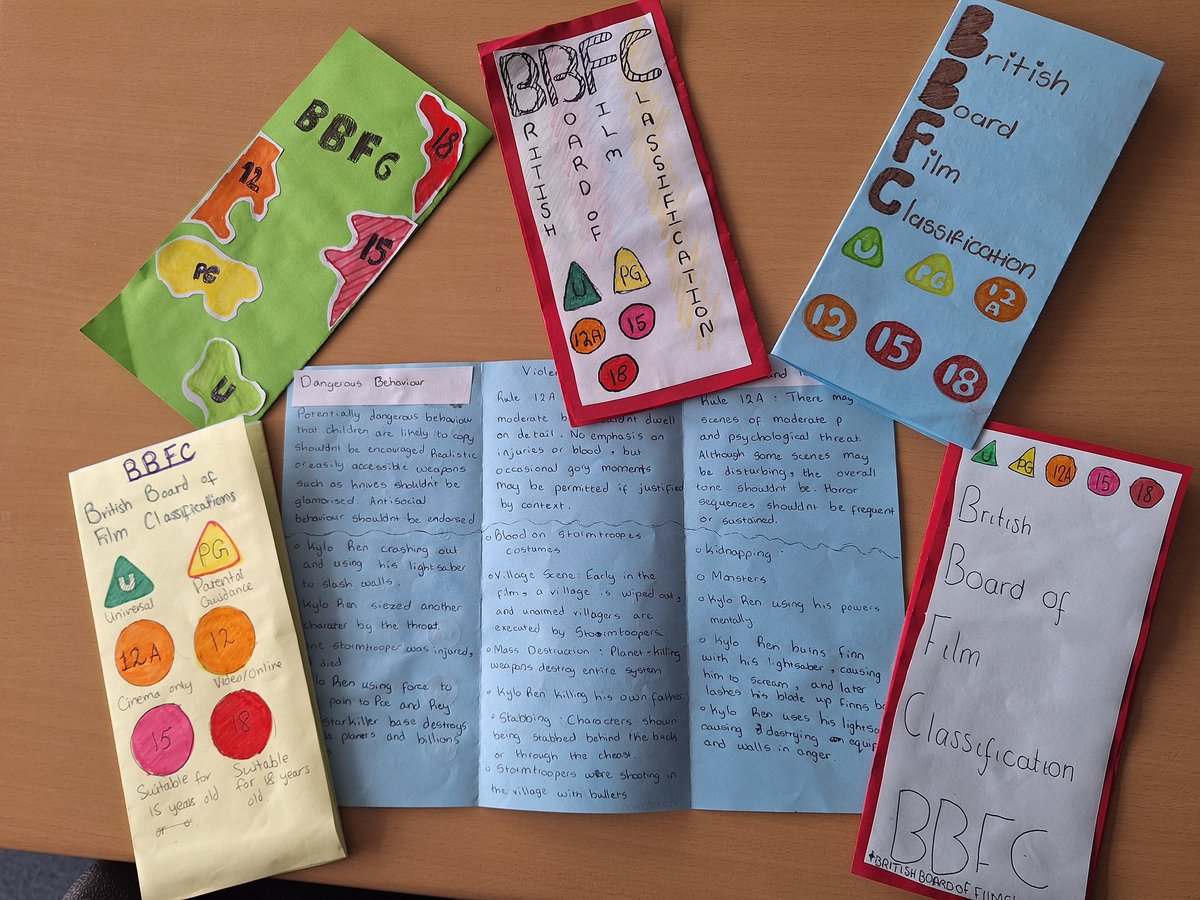 BBFC
12
18
15
PG
U
BBFC
RITISH
OARD OF
ILM
LASSIFICATION
U
PG
12A
15
18
British
Board
Film
Classification
U
PG
12A
12
15
18
BBFC
British Board of
Film Classifications
U
PG
Universal
Parental
Guidance
12A
12
Cinema only
Video/Online
15
18
Suitable for
15 years old
Suitable
for 18 years
old
Dangerous Behaviour
Potentially dangerous behaviour
that children are likely to copy
shouldnt be encouraged Realistic
or easily accessible weapons
such as knives shouldnt be
glamorised. Antisocial
behaviour shouldnt be endorsed
Kylo Ren crashing out
and using his lightsaber
to slash walls.
Kylo Ren siezed another
by the throat
stormtrooper was injured,
died
Ren using force to
pain to Poe and Rey
starkiller base destroys
planets and billions
Rule 12A
moderate
dwell
on detail. No emphasis on
injuries or blood, but
occasional gory moments
may be permitted if justified
by context.
Blood on Stormtroopes
costumes
Village Scene: Early in the
film, a village is wiped out,
and unarmed villagers are
executed by Stormtroopers
Mass Destruction: Planet-killing
weapons destroy entire system
Kylo Ren killing his own father
Stabbing: Characters shown
being stabbed behind the back
or through the cheast.
Stormtroopers were shooting in
the village with bullets
Rule 12A: There may
scenes of moderate p
and psychological threat.
Although some scenes may
be disturbing, the overall
tone shouldnt be. Horror
sequences shouldnt be frequent
or sustained.
Kidnapping:
Monsters
Kylo Ren using his powers
mentally.
Kylo Ren burns finn
with his lightsaber, causing
him to scream, and later
lashes his blade up finns
Kylo Ren uses his
causing destrying
and walls in anger.
U
PG
12A
15
18
British
Board of
Film
Classification
BBFC
BRITISH BOARD OF